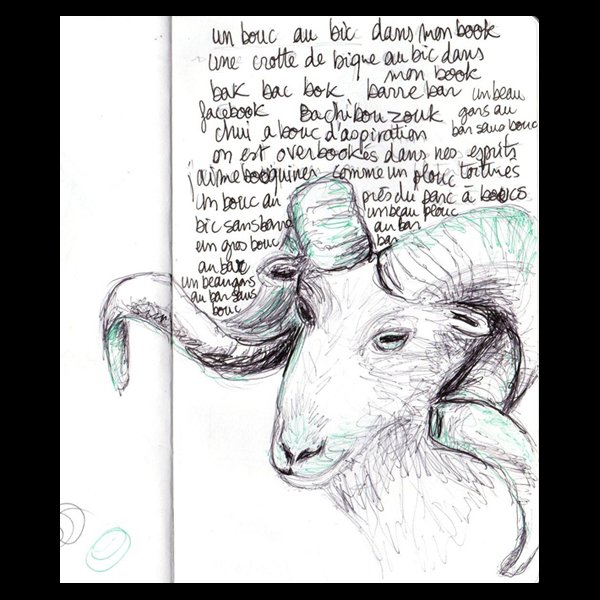 un bouc au bic dans mon book
une crotte de bique au bic dans
mon book
bak bac bok barre bar un beau
facebook Bachibouzouk gars au
chui a bouc d'aspiration bar sans bouc
on est overbookés dans nos esprits
j'aime booquiner comme un plouc toitures
un bouc au près du parc à boucs
bic sans barre un beau plouc
un gros bouc au bar
au bar bar
un beau gars
au bar sans
bouc